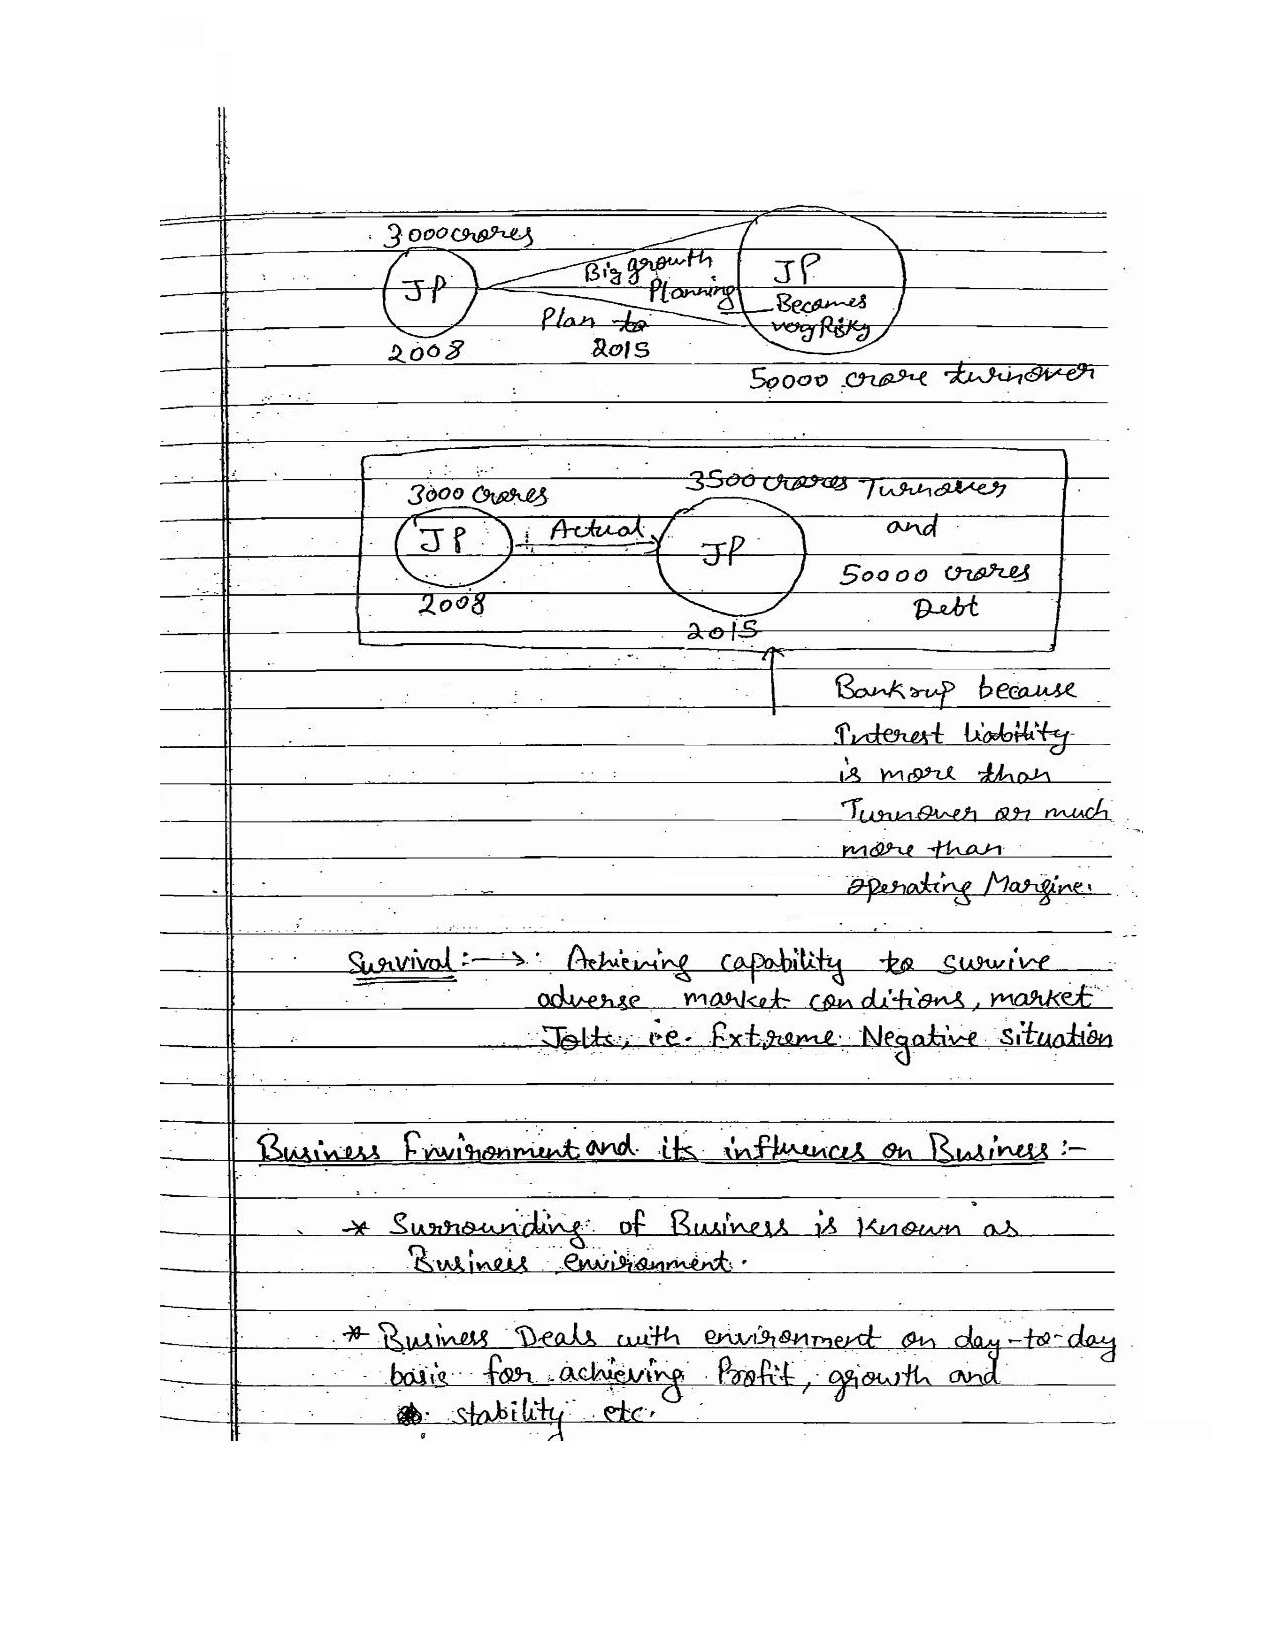 3000 crores
JP
Big growth
Planning
JP
Becames
very Risky
Plan to
2008
2015
50000 crore turnover
3000 crores
3500 crores Turnover
JP
Actual
JP
and
50000 crores
2008
Debt
2015
Bankrup because
Interest liability
is more than
Turnover or much
more than
operating Margine.
Survival :—> Achieving capability to survive
adverse market conditions, market
Jolts, i.e. Extreme Negative situation
Business Environment and its influences on Business :-
* Surrounding of Business is known as
Business environment.
* Business Deals with environment on day-to-day
basic for achieving Profit, growth and
stability etc.